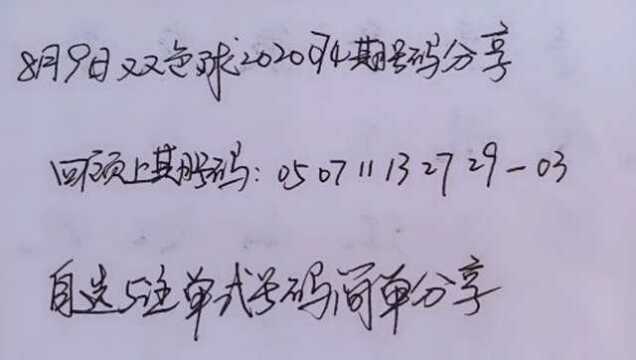 8月9日双色球2020074期号码分享
回顾上期号码:05 07 11 13 27 29-03
自选5注单式号码简单分享